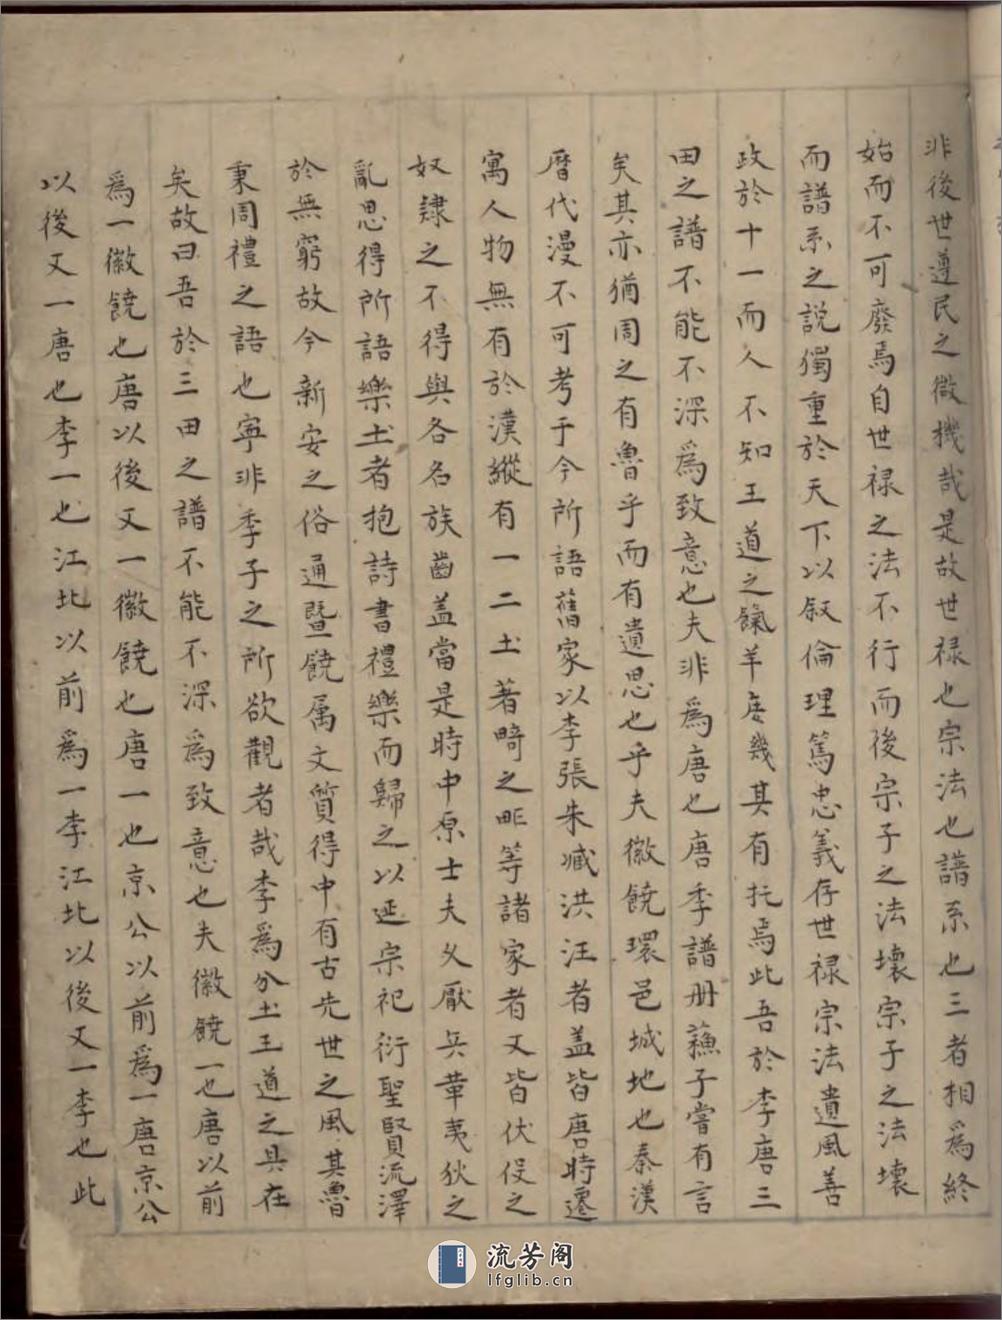 非後世遵民之微機哉是故世禄也宗法也譜系也三者相為終
始而不可廢焉自世禄之法不行而後宗子之法壞宗子之法壞
而譜系之説獨重於天下以叙倫理篤忠義存世禄宗法遺風善
政於十一而人不知王道之餼羊庶幾其有托焉此吾於李唐三
田之譜不能不深為致意也夫非為唐也唐季譜册蘓子嘗有言
矣其亦猶周之有魯乎而有遺思也乎夫徽饒環邑城地也秦漢
曆代漫不可考于今所語舊家以李張朱臧洪汪者盖皆唐時遷
寓人物無有於漢縱有一二土著畸之畔等諸家者又皆伏役之
奴隸之不得與各名族齒盖當是時中原士夫乂厭兵革夷狄之
亂思得所語樂土者抱詩書禮樂而歸之以延宗祀衍聖賢流澤
於無窮故今新安之俗通暨饒属文質得中有古先世之風其魯
秉周禮之語也寧非季子之所欲觀者哉李為分土王道之具在
矣故曰吾於三田之譜不能不深為致意也夫徽饒一也唐以前
為一徽饒也唐以後又一徽饒也唐一也京公以前為一唐京公
以後又一唐也李一也江北以前為一李江北以後又一李也此
流芳阁
lfglib.cn